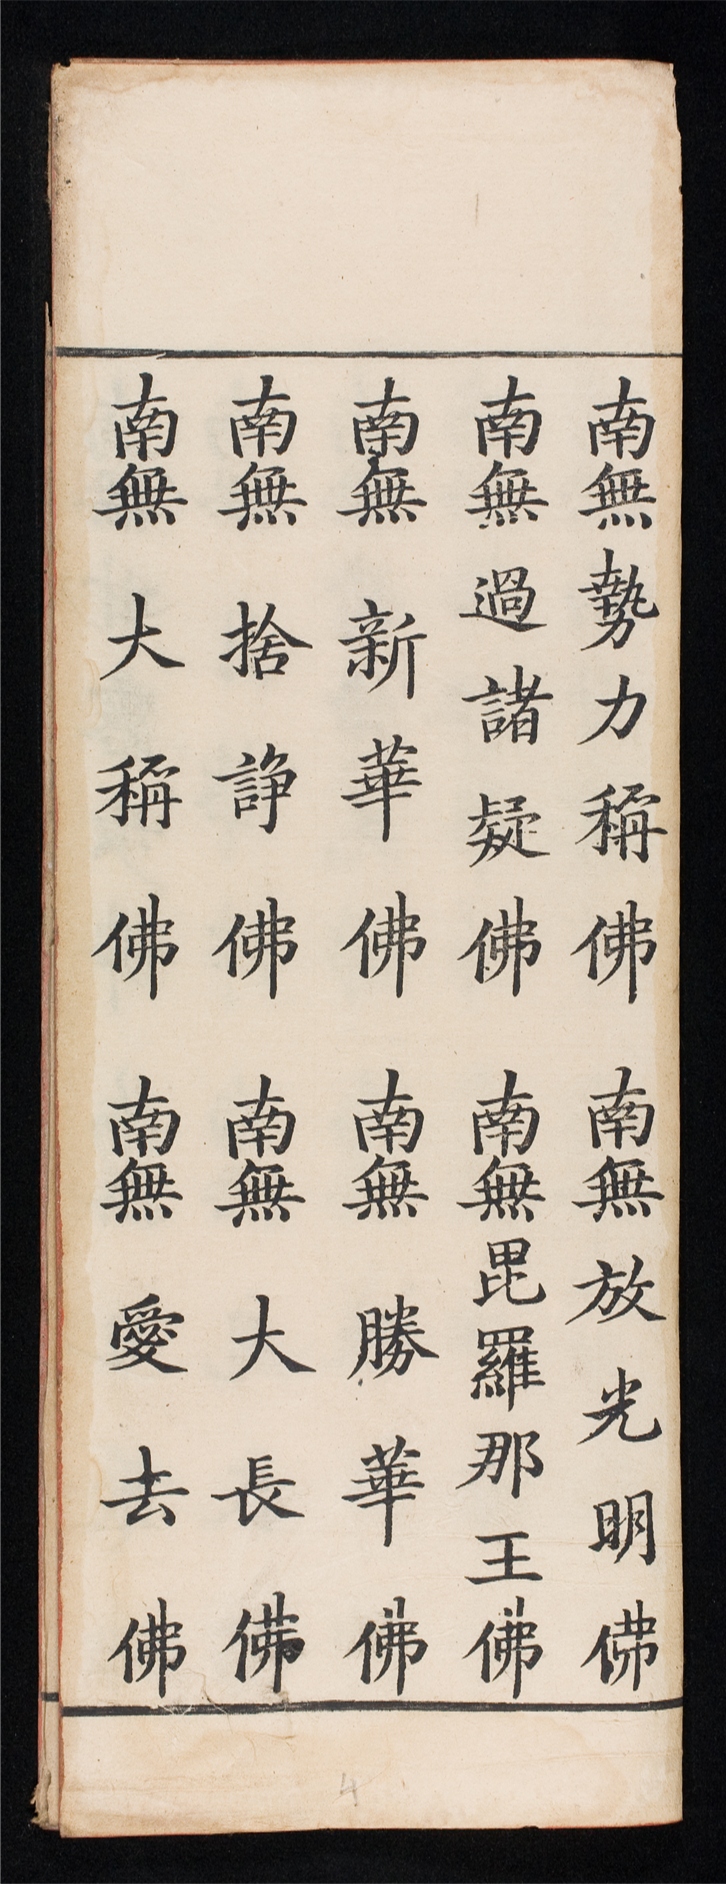 南無勢力稱佛 南無放光明佛
南無過諸疑佛 南無毘羅那王佛
南無新華佛 南無勝華佛
南無捨諍佛 南無大長佛
南無大稱佛 南無愛去佛
4